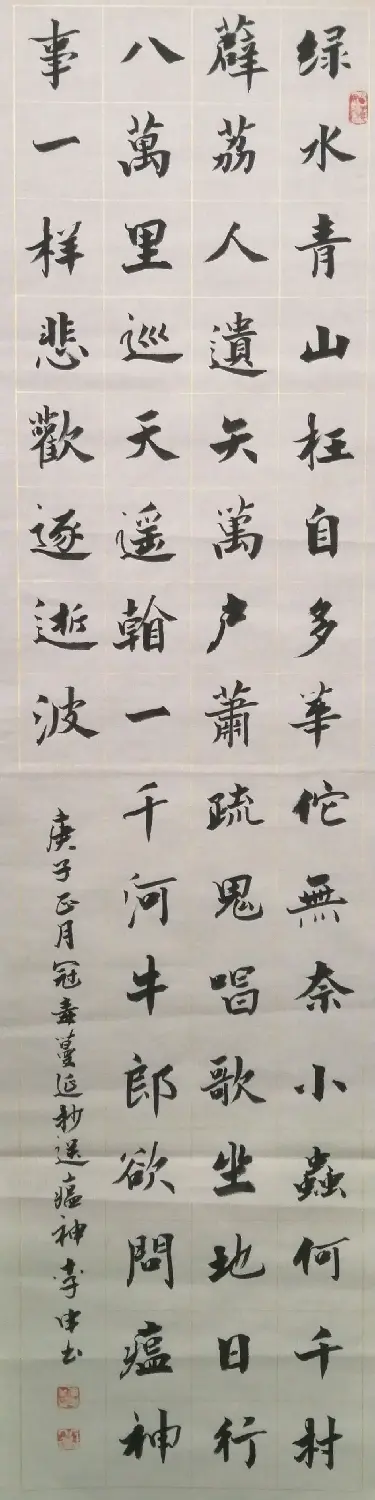 绿水青山枉自多華佗無奈小蟲何千村
薜荔人遺矢萬户蕭疏鬼唱歌坐地日行
八萬里巡天遥翰一千河牛郎欲問瘟神
事一样悲歡逐逝波
庚子正月冠毒蔓延抄送瘟神李申书